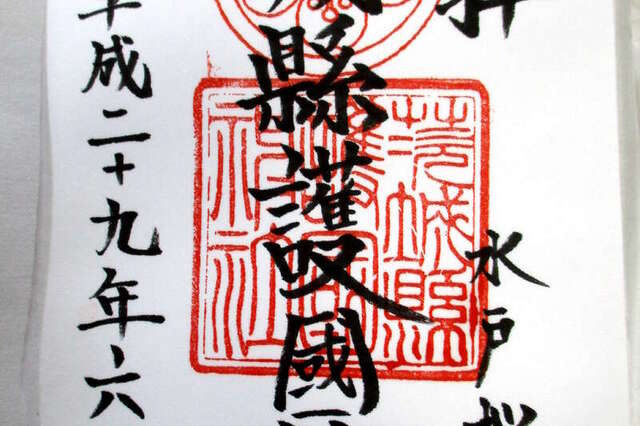 拝
水戸桜
城縣護國神
平成二十九年六
茨城縣
護國
神社